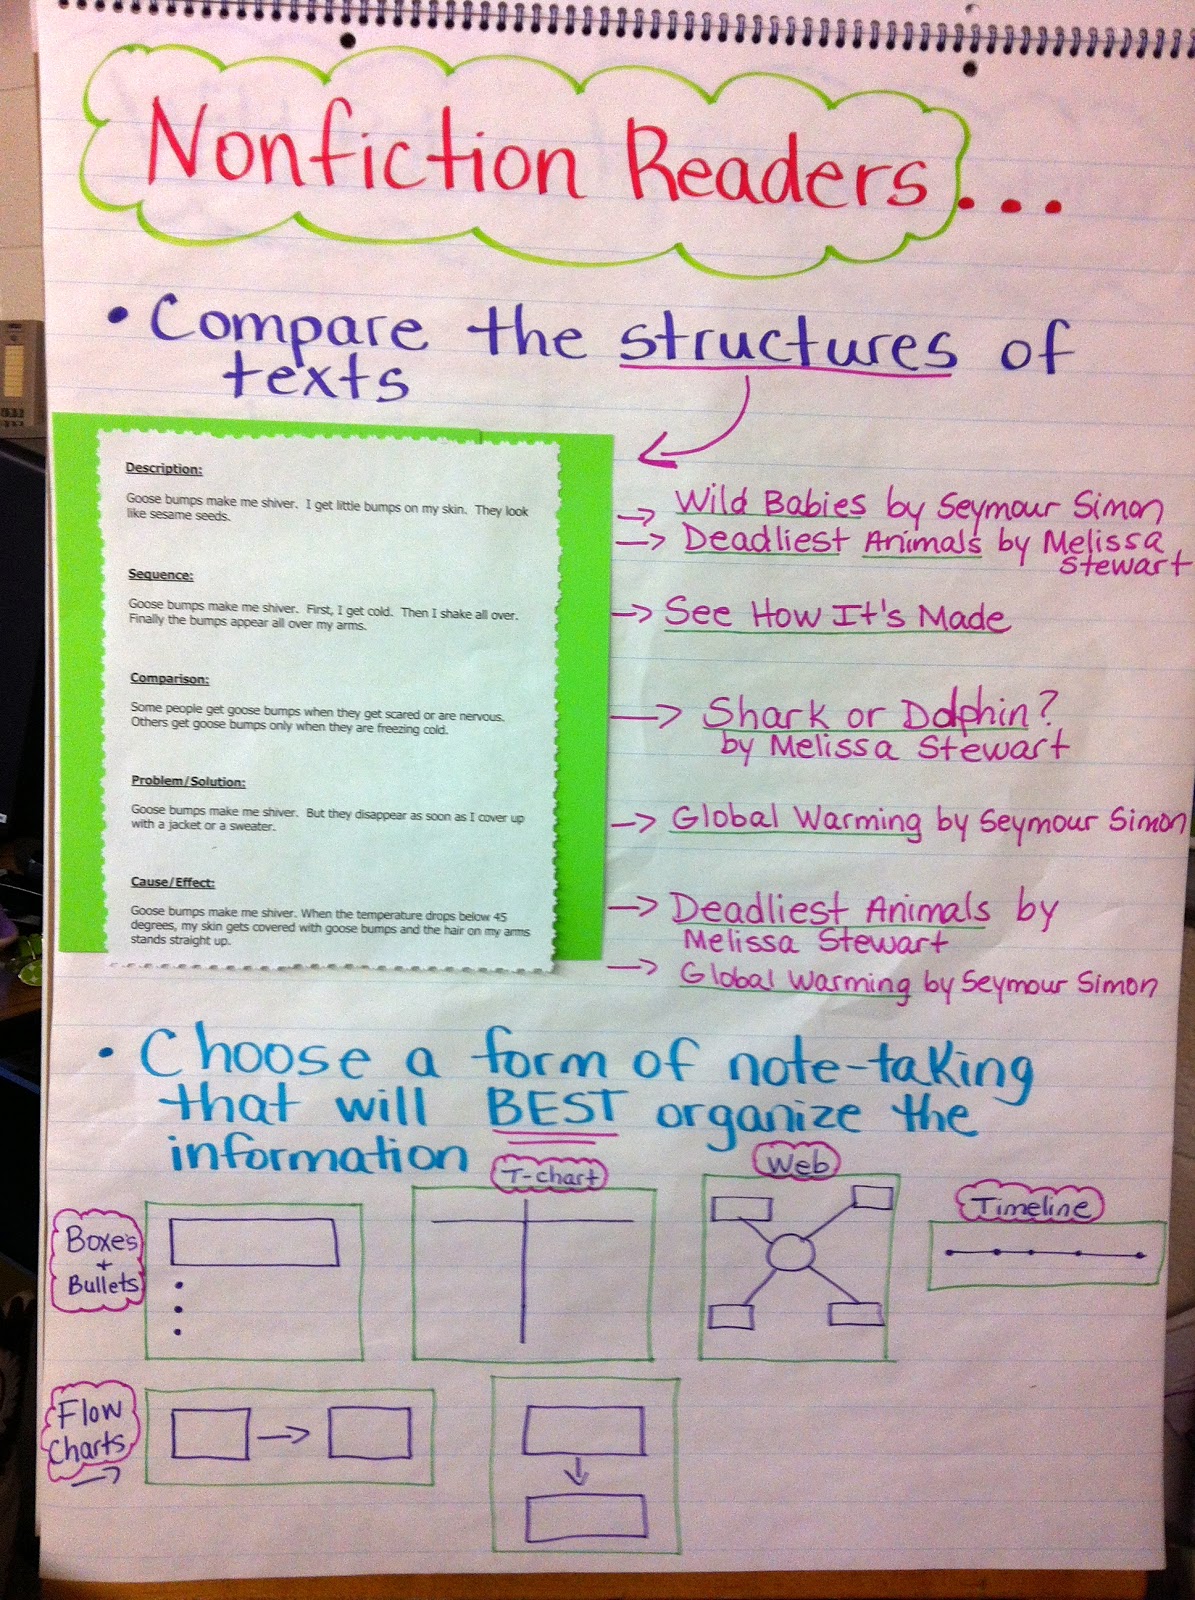 Nonfiction Readers...
• Compare the structures of
texts
Description:
Goose bumps make me shiver. I get little bumps on my skin. They look
like sesame seeds.
Sequence:
Goose bumps make me shiver. First, I get cold. Then I shake all over.
Finally the bumps appear all over my arms.
Comparison:
Some people get goose bumps when they get scared or are nervous.
Others get goose bumps only when they are freezing cold.
Problem/Solution:
Goose bumps make me shiver. But they disappear as soon as I cover up
with a jacket or a sweater.
Cause/Effect:
Goose bumps make me shiver. When the temperature drops below 45
degrees, my skin gets covered with goose bumps and the hair on my arms
stands straight up.
→ Wild Babies by Seymour Simon
→ Deadliest Animals by Melissa
Stewart
→ See How It's Made
→ Shark or Dolphin?
by Melissa Stewart
→ Global Warming by Seymour Simon
→ Deadliest Animals by
Melissa Stewart
→ Global Warming by Seymour Simon
• Choose a form of note-taking
that will BEST organize the
information
Boxes
+
Bullets
T-chart
Web
Timeline
Flow
Charts